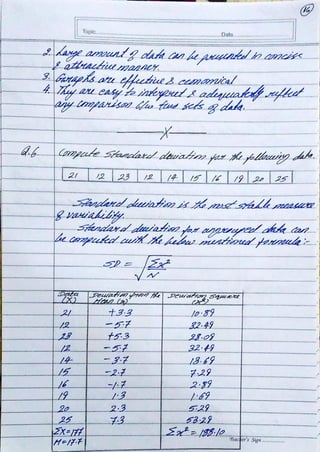 15
Topic
Date
2. Large amount of data can be presented in concise
& attractive manner.
3. Graphs are effective & economical
4. They are easy to interpret & adequately reflect
any comparison b/w two sets of data.
X
Q.6 Compute Standard deviation for the following data.
21 12 23 12 14 15 16 19 20 25
Standard deviation is the most stable measure
of variability.
Standard deviation for ungrouped data can
be computed with the below mentioned formula:-
SD = √Σx²/N
Data (X) Deviation from the Mean (x) Deviation square (x²)
21 +3.3 10.89
12 -5.7 32.49
23 +5.3 28.09
12 -5.7 32.49
14 -3.7 13.69
15 -2.7 7.29
16 -1.7 2.89
19 1.3 1.69
20 2.3 5.29
25 7.3 53.29
ΣX=177 Σx²=188.10
M=17.7
Teacher's Sign